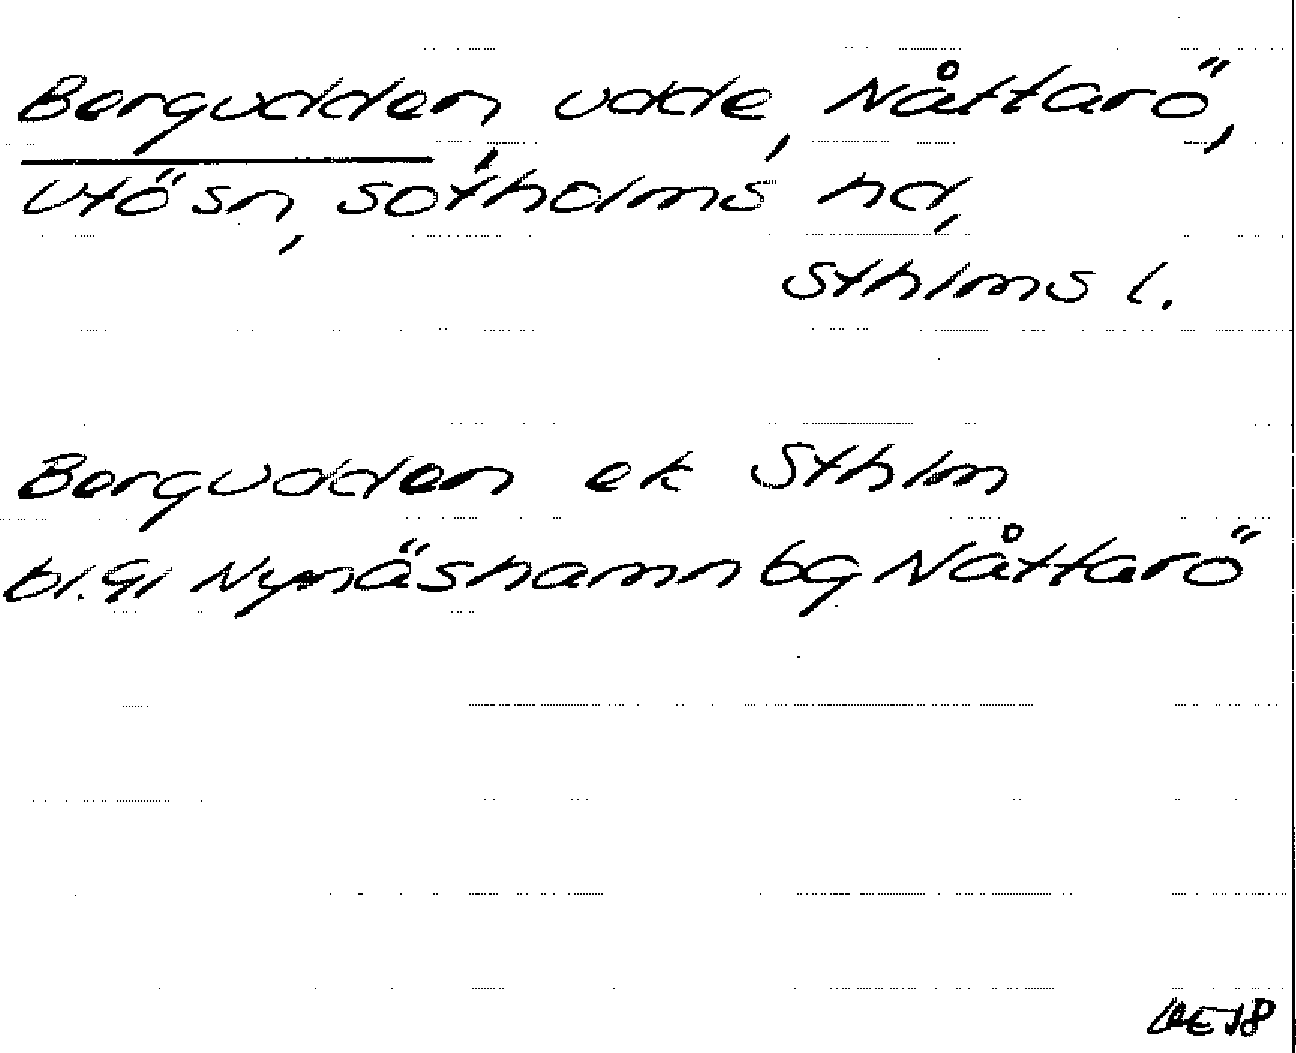 Bergudden, udde, Nåttarö,
Utö sn, Sotholms hd,
Sthlms l.
Bergudden ek Sthlm
bl. 91 Nynäshamn 6g Nåttarö